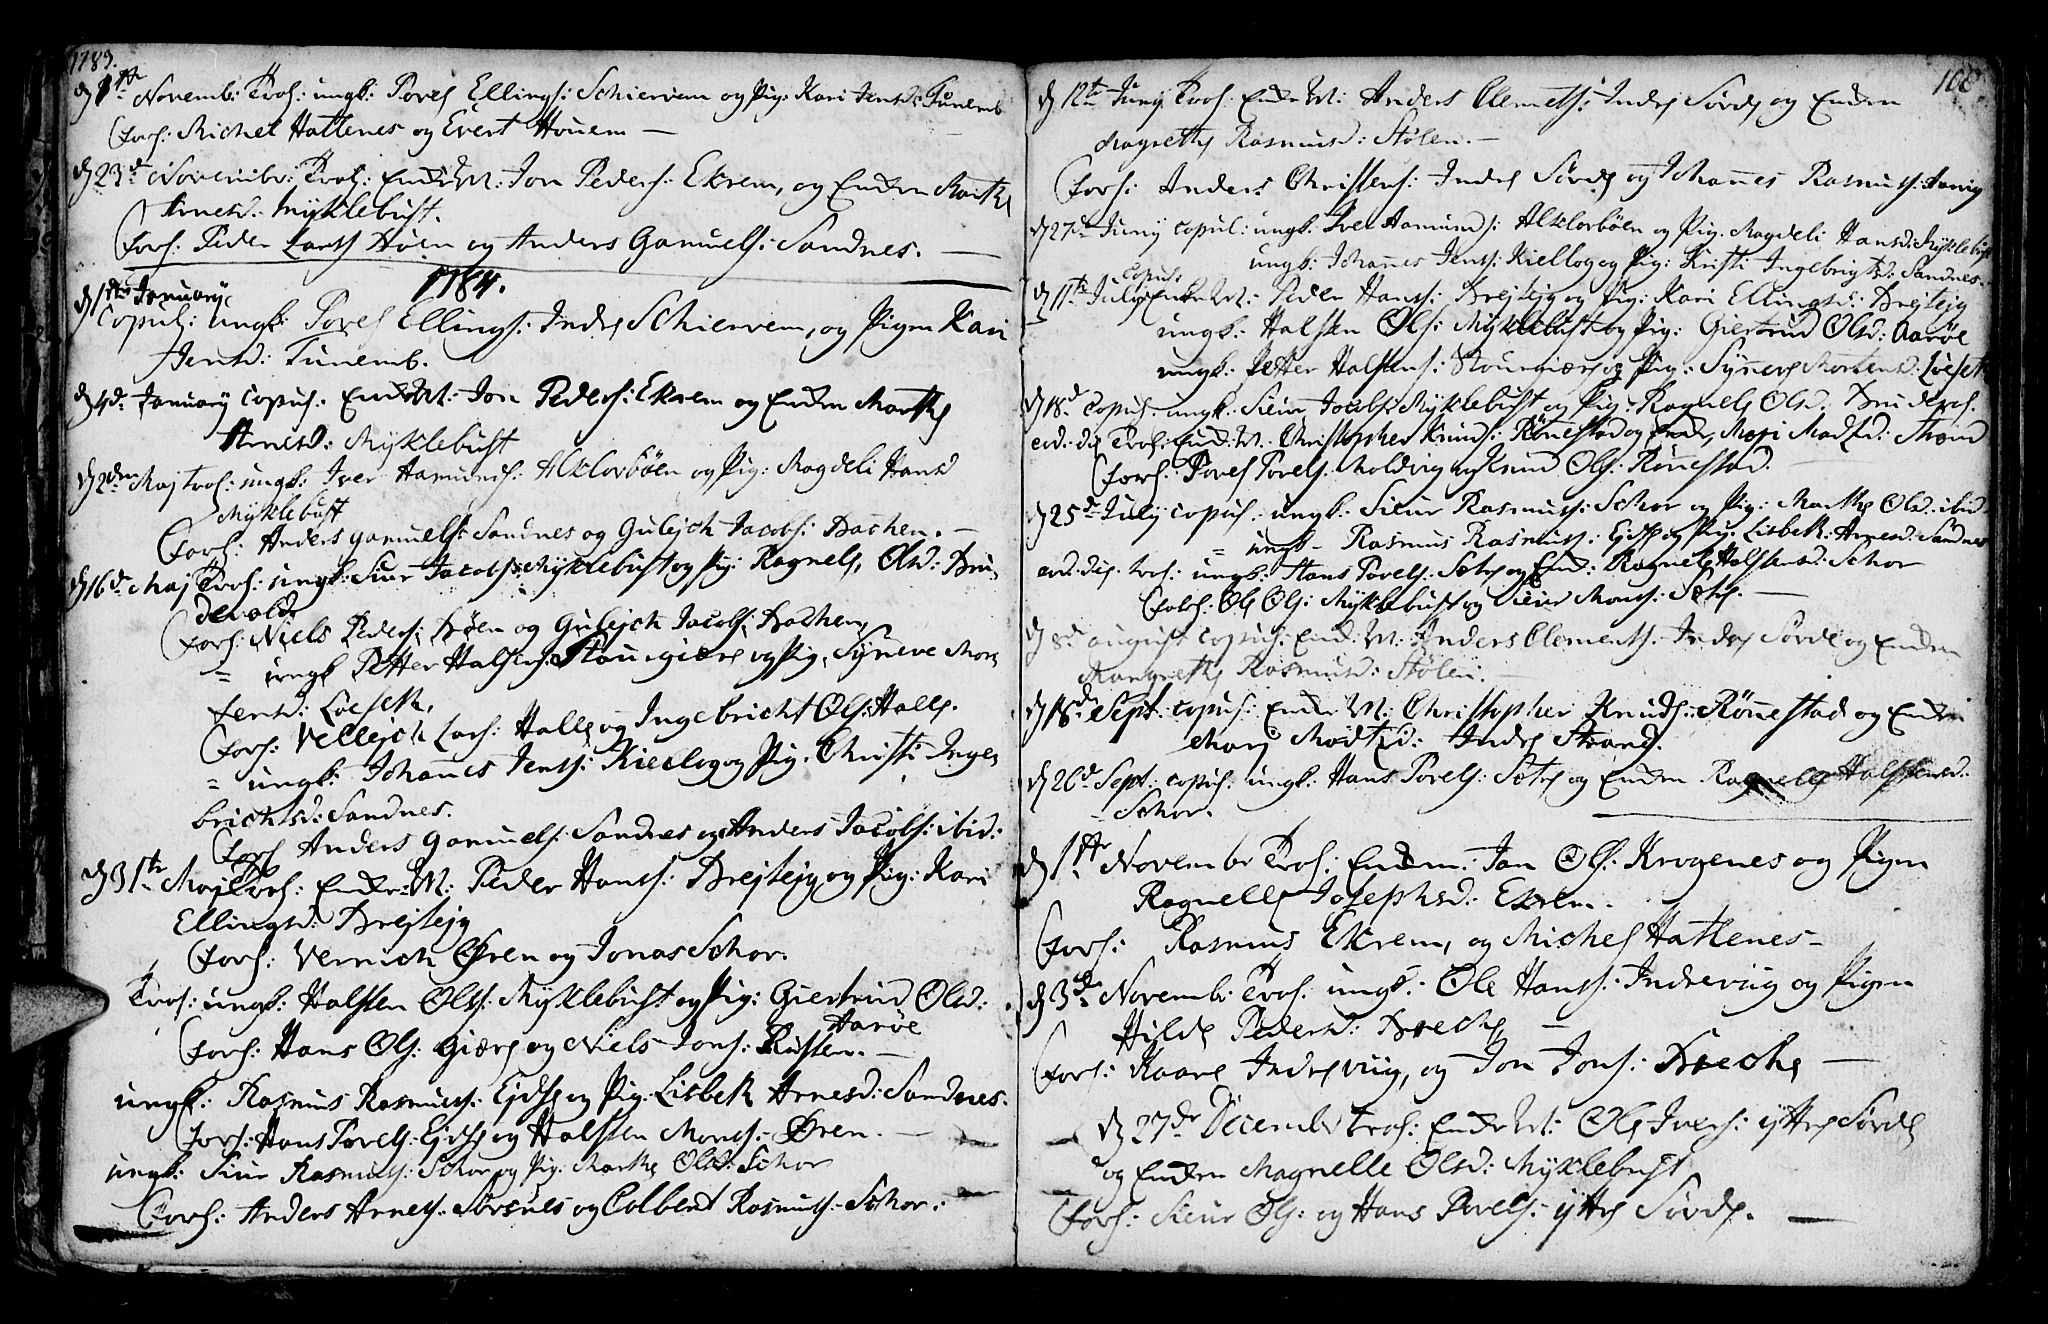 1783.
d 1te Novemb: Trol: ungk: Povel Ellings: Schiervem og Pig: Kari Jensd: Tunemb
Forl: Michel Hattenes og Evert Houem —
d 23d Novembr: Trol: Enke M: Jon Peders: Ekrem, og Enken Marthe
Arnesd: Myklebust.
Forl: Peder Larss Høen og Anders Gamuels: Sandnes. —
1784.
d 1te January
Copul: ungk: Povel Ellings: Indre Schiervem, og Pigen Kari
Jensd: Tunemb.
d 4d January Copul: Enke M: Jon Peders: Ekrem og Enken Marthe
Arnesd: Myklebust
d 2den Maj trol: ungk: Iver Hamunds: Alklorbøen og Pig: Magdeli Hansd
Myklebust
Forl: Anders Gamuels: Sandnes og Gulejch Jacobs: Bachen. —
d 16d Maj Trol: ungk: Siur Jacobs: Myklebust og Pig: Ragnele, Olsd: Bru-
devold
Forl: Niels Peders: Høen og Gulejch Jacobs: Bachen,
= ungk Petter Halsens: Stourgiære og Pig: Syneve Mor-
tensd: Løeseth.
Forl: Vellejch Lars: Halle og Ingebricht Ols: Halle.
= ungk: Johanes Jenss: Kiellog og Pig: Christi Inge-
brichtsd: Sandnes.
Forl Anders Gamuels: Sandnes og Anders Jacobs: ibid:
d 31te Maj Trol: Enke: M: Peder Hanss: Brejtejg og Pig: Kari
Ellingsd: Brejtejg
Forl: Vernich Øren og Jonas Schor.
Trol: ungk: Halsten Olss: Myklebust og Pig: Giertrud Olsd:
Aarøe
Forl: Hans Ols: Giære og Niels Jons: Rusten. —
ungk: Rasmus Rasmuss: Ejdse og Pig: Lisbeth Arnesd: Sandnes.
Forl: Hans Povels: Ejdse og Halsten Monss: Øren. —
ungk: Siur Rasmuss: Schor og Pig: Marthe Olsd: Schor
Forl: Anders Arness: Sørsnes og Colbent Rasmuss: Schor.
108
d 12te Juny Trol: Enke M: Anders Clemets: Indre Sørde og Enken
Magrethe Rasmusd: Stølen. —
Forl: Anders Christens: Indre Sørde og Johanes Rasmuss:
d 27de Juny copul: ungk: Iver Hamunds: Alklorbøen og Pig. Magdeli Hansd: Myklebust
ungk: Johanes Jenss: Kiellog og Pig: Kristi Ingebrigtsd: Sandnes.
d 11te July copul: Enke M: Peder Hanss: Brejtejg og Pig: Kari Ellingsd: Brejtejg
ungk: Halsten Ols: Myklebust og Pig: Giertrud Olsd: Aarøe
ungk: Petter Halstens: Stourgiære og Pig: Syneve Mortensd: Løeset
d 18d copul: ungk: Siur Jacobs: Myklebust og Pig: Ragnele Olsd: Brudevol.
eod: die Trol: Enk: M: Christopher Knuds: Rønestad og Enke, Mari Madtzd: Strand
Forl: Povel Povels: Moldvig og Knud Ols: Rønestad.
d 25d July copul: ungk: Siur Rasmuss: Schor og Pig: Marthe Olsd: ibid
= ungk – Rasmus Rasmuss: Ejdse og Pig: Lisbeth Arnesd: Sandnes
eod: die, trol: ungk: Hans Povels: Sætre og Enk: Ragnele Halstensd: Schor
Forl: Ole Ols: Myklebust og Siur Monss: Sætre. —
d 8d august copul: Enk: M: Anders Clements: Indre Sørde og Enken
Mangrethe Rasmusd: Stølen. —
d 18de Sept: copul: Enke M: Christopher Knuds: Rønestad og Enken
Mari Madtzd: Indre Strand.
d 26d Sept: copul: ungk: Hans Povels: Sætre og Enken Ragnele Halstensd:
Schor.
d 1te Novembr Trol: Enkem: Jan Ols: Krogenes og Pigen
Ragnelle Josephsd: Ekrem.
Forl: Rasmus Ekrem, og Michel Hattenes –
d 3de Novemb: Trol: ungk: Ole Hanss: Indrevug og Pigen
Hilde Pedersd: Breche —
Forl: Kaare Indrevug, og Jon Jons: Breche —
d 27de Decemb trol: Enke M: Ole Ivers: ytre Sørde
og Enken Magnelle Olsd: Myklebust
Forl: Siur Ols: og Hans Povels: ytre Sørde. —